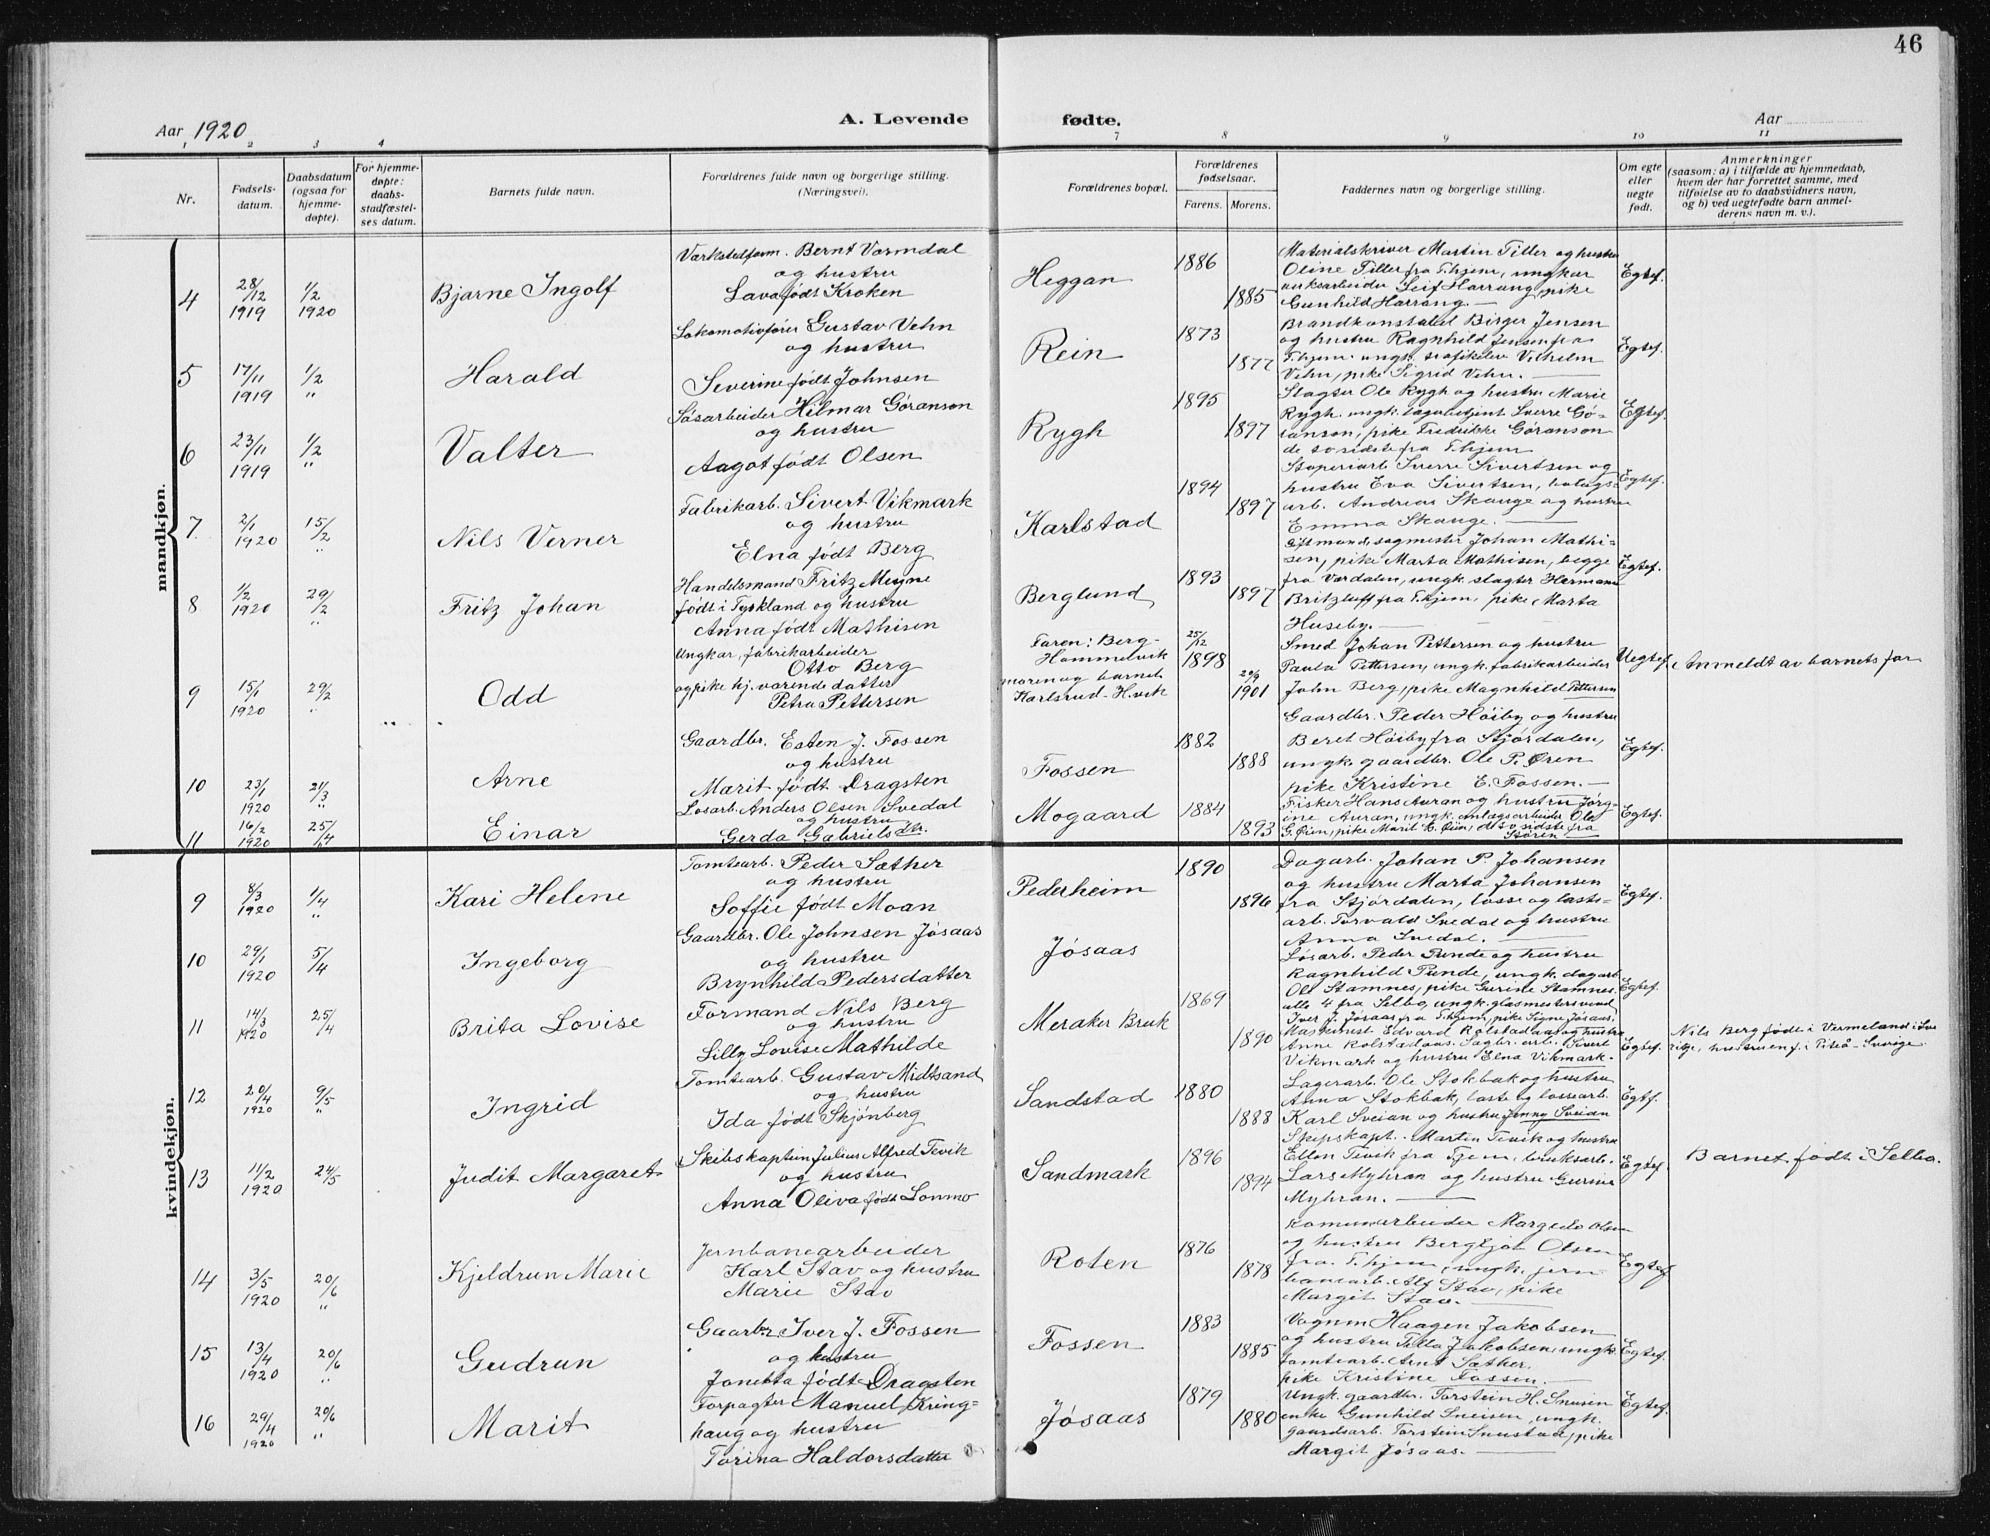 46
Aar 1920
A. Levende
fødte.
Aar
1 2 3 4
7 8 9 10 11
Nr.
Fødsels-
datum.
Daabsdatum
(ogsaa for
hjemme-
døpte).
For hjemme-
døpte:
daabs-
stadfæstel-
ses datum.
Barnets fulde navn.
Forældrenes fulde navn og borgerlige stilling.
(Næringsvei).
Forældrenes bopæl.
Forældrenes
fødselsaar.
Farens. Morens.
Faddernes navn og borgerlige stilling.
Om egte
eller
uegte
født.
Anmerkninger
(saasom: a) i tilfælde av hjemmedaab,
hvem der har forrettet samme, med
tilføielse av to daabsvidners navn,
og b) ved uegtefødte barn anmel-
derens navn m. v.).
mandkjøn.
4
28/12
1919
1/2
1920
Bjarne Ingolf
Værkstedform. Bernt Værmdal
og hustru
Lava født Kroken
Heggan
1886
1885
Materialskriver Martin Tiller og hustru
Oline Tiller fra T.hjem, ungkar
verksarbeider Leif Harrang, pike
Gunhild Harrang.
Egtef.
5
17/11
1919
1/2
"
Harald
Lokomotivfører Gustav Vehn
og hustru
Severine født Johnsen
Rein
1873
1877
Brandkonstabel Birger Jensen
og hustru Ragnhild Jensen fra
T.hjem. ungk. trafikelev Vilhelm
Vehn, pike Sigrid Vehn.
Egtef.
6
23/11
1919
1/2
"
Valter
Løsarbeider Hilmar Göranson
og hustru
Aagot født Olsen
Rygh
1895
1897
Slagter Ole Rygh og hustru Marie
Rygh. ungk. lagerbetjent Sverre Gö-
ranson, pike Fredrikke Göranson
de to sidste fra T.hjem
Egtef.
7
2/1
1920
15/2
"
Nils Verner
Fabrikarb. Sivert Vikmark
og hustru
Elna født Berg
Karlstad
1894
1897
Støperiarb Sverre Sivertsen og
hustru Eva Sivertsen,
arb. Andreas Skauge og hustru
Emma Skauge.
Egtef.
8
1/2
1920
29/2
"
Fritz Johan
Handelsmand Fritz Meyne
født i Tyskland og hustru
Anna født Mathisen
Berglund
1893
1897
Giftmand, sagmester Johan Mathi-
sen, pike Marta Mathisen, begge
fra Værdalen, ungk. slagter Hermann
Britzluff fra T.hjem, pike Marta
Huseby.
Egtef.
9
15/1
1920
29/2
"
Odd
Ungkar, fabrikarbeider
Otto Berg
og pike hj. værende datter
Petra Pettersen
Faren: Berg-
Hommelvik
moren og barnet
Karlsrud H.vik
25/12
1898
20/9
1901
Smed Johan Pettersen og hustru
Paula Pettersen, ungk. fabrikarbeider
John Berg, pike Magnhild Pettersen
Uegtef.
Anmeldt av barnets far
10
23/1
1920
21/3
"
Arne
Gaardbr. Esten J. Fossen
og hustru
Marit født Dragsten
Fossen
1882
1888
Gaardbr. Peder Höiby og hustru
Beret Höiby fra Stjørdalen,
ungk. gaardbr. Ole P. Øren
pike Kristine E. Fossen.
Egtef.
11
16/2
1920
25/4
"
Einar
Løsarb. Anders Olsen Svedal
og hustru
Gerda Gabriels dtr.
Mogaard
1884
1893
Fisker Hans Auran og hustru Jørg-
ine Auran, ungk. anlægsarbeider Ole
G. Øien, pike Marit E. Øien, de to sidste fra
Støren
Egtef.
kvindekjøn.
9
8/3
1920
1/4
"
Kari Helene
Tomtearb. Peder Sæther
og hustru
Soffie født Moan
Pederheim
1890
1896
Dagarb. Johan P. Johansen
og hustru Marta Johansen
fra Stjørdalen, losse og laste-
arb. Torvald Svedal og hustru
Anna Svedal.
Egtef.
10
29/1
1920
5/4
Ingeborg
Gaardbr. Ole Johnsen Jösaas
og hustru
Brynhild Pedersdatter
Jösaas
Løsarb. Peder Punde og hustru
Ragnhild Punde, ungk. dagarb
Ole Stamnes, pike Gurine Stamnes
alle 4 fra Selbo, ungk. glasmestersvend
Iver J. Jösaas fra T.hjem, pike Signe Jösaas.
Egtef.
11
14/3
1920
25/4
Brita Lovise
Formand Nils Berg
og hustru
Lilly Lovise Mathilde
Meraker Bruk
1869
1890
Maskinist. Edvard Rolstadaas og hustru
Anne Rolstadaas. Sagbr. arb. Sivert
Vikmark og hustru Elna Vikmark.
Egtef.
Nils Berg født i Vermeland i Sve
rige, hustruen f. i Piteå - Sverige
12
20/4
1920
9/5
"
Ingrid
Tomtearb. Gustav Midtsand
og hustru
Ida født Skjönberg
Sandstad
1880
1888
Lagerarb. Ole Stokbak og hustru
Anna Stokbak, laste og lossearb.
Karl Sveian og hustru Jenny Sveian
Egtf.
13
11/2
1920
24/5
Judit Margaret
Skibskaptein Julius Alfred Tevik
og hustru
Anna Oliva født Lonmo
Sandmark
1896
1894
Skipskapt. Martin Tevik og hustru
Ellen Tevik fra T.jem, bruksarb.
Lars Myhran og hustru Gurine
Myhran.
Egtef.
Barnet født i Selbo.
14
3/5
1920
20/6
"
Kjeldrun Marie
Jernbanearbeider
Karl Stav og hustru
Marie Stav
Roten
1876
1878
Komunarbeider Margido Olsen
og hustru Bergljot Olsen
fra T.hjem, ungk. jern-
banearb. Alf Stav, pike
Margit Stav.
Egtef.
15
13/4
1920
20/6
"
Gudrun
Gaarbr Iver J. Fossen
og hustru
Jonetta født Dragsten
Fossen
1883
1885
Vognm Haagen Jakobsen
og hustru Tilla Jakobsen, ungk.
tomtearb. Arnt Sæther.
pike Kristine Fossen.
Egtef.
16
29/4
1920
20/6
"
Marit
Forpagter Manuel Kring-
haug og hustru
Torina Haldorsdatter
Jösaas
1879
1880
Ungk. gaardbr. Torstein H. Snusen
enke Gunhild Sneisen, ungk.
gaardsarb. Torstein Snustad, pike
Margit Jösaas.
Egtef.